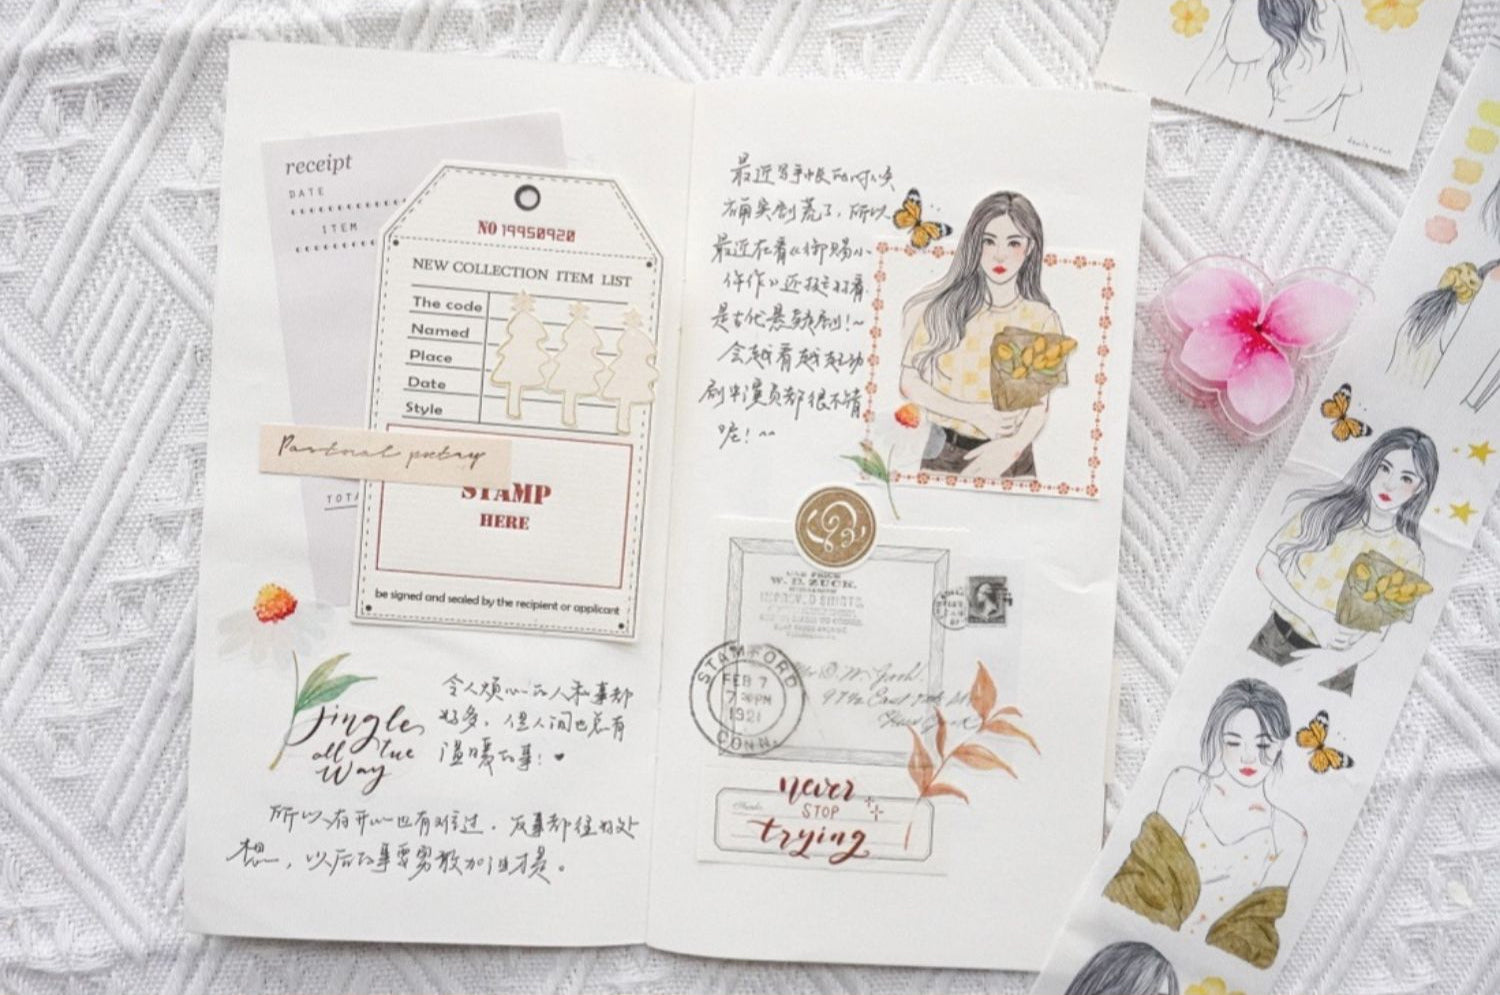 receipt
DATE
ITEM
NO 19950920
NEW COLLECTION ITEM LIST
The code
Named
Place
Date
Style
Pastoral poetry
TOTA
STAMP
HERE
be signed and sealed by the recipient or applicant
令人烦心的人和事都
好多，但人间也总有
温暖故事！♥
jingle
all the
Way
所以有开心也有难过，凡事都往好处
想，以后的事要勇敢加油才是。
最近写手帐的时候
确实剧荒了，所以
最近在看《御赐小
仵作》还挺好看
是古代悬疑剧！~
会越看越起劲
剧中演员都很不错
呢！~~
W. D. ZUCK,
STAMFORD
FEB 7
7 30PM
1921
CONN.
never
STOP
trying